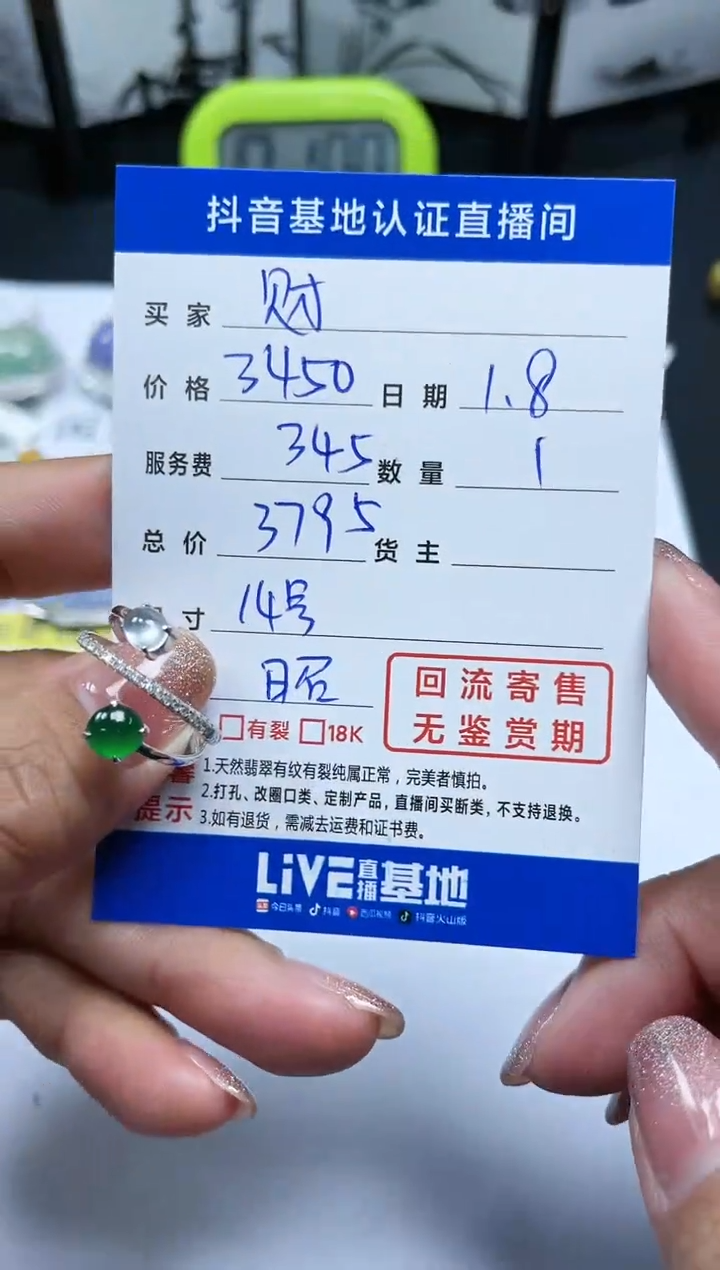 抖音基地认证直播间
买家 财
价格 3450 日期 1.8
服务费 345 数量 1
总价 3795 货主
寸 14号
昭
回流寄售
无鉴赏期
有裂 18K
提示
1.天然翡翠有纹有裂纯属正常，完美者慎拍。
2.打孔、改圈口类、定制产品，直播间买断类，不支持退换。
3.如有退货，需减去运费和证书费。
LiVE直播基地
今日头条 抖音 西瓜视频 抖音火山版